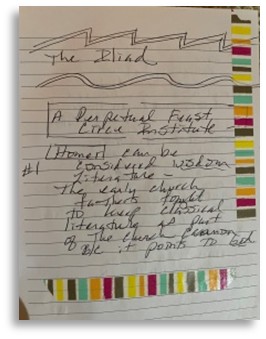 The Iliad
A Perpetual Feast
Circe Institute
Homer can be
#1 considered wisdom
literature -
The early church
fathers fought
to keep classical
literature as part
of the church
b/c it points to God